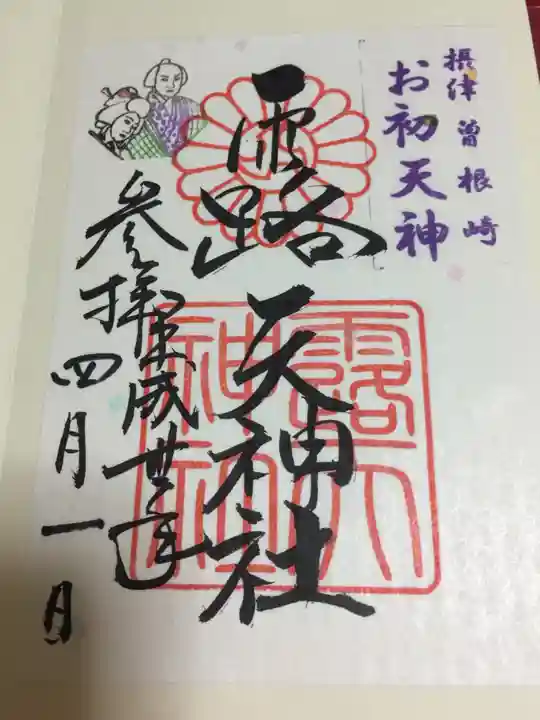 摂津 曽根崎
お初天神
露天神社
参拝平成卅一年
四月一日
露天
神社